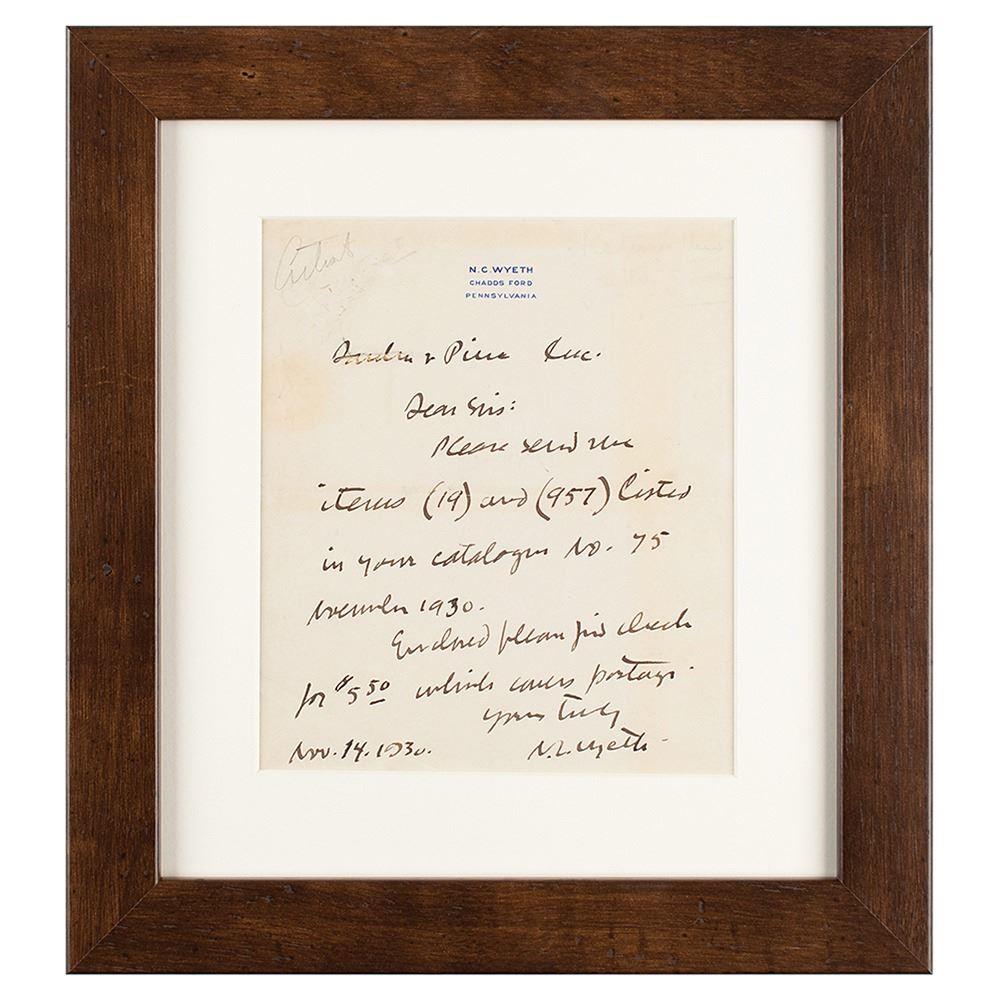 Artist
N. C. WYETH
CHADDS FORD
PENNSYLVANIA
& Pierce Inc.
Dear Sirs:
Please send me
items (19) and (957) listed
in your catalogue No. 75
November 1930.
Enclosed please find check
for $5.50 which covers postage.
Yours truly
Nov. 14. 1930. N. C. Wyeth